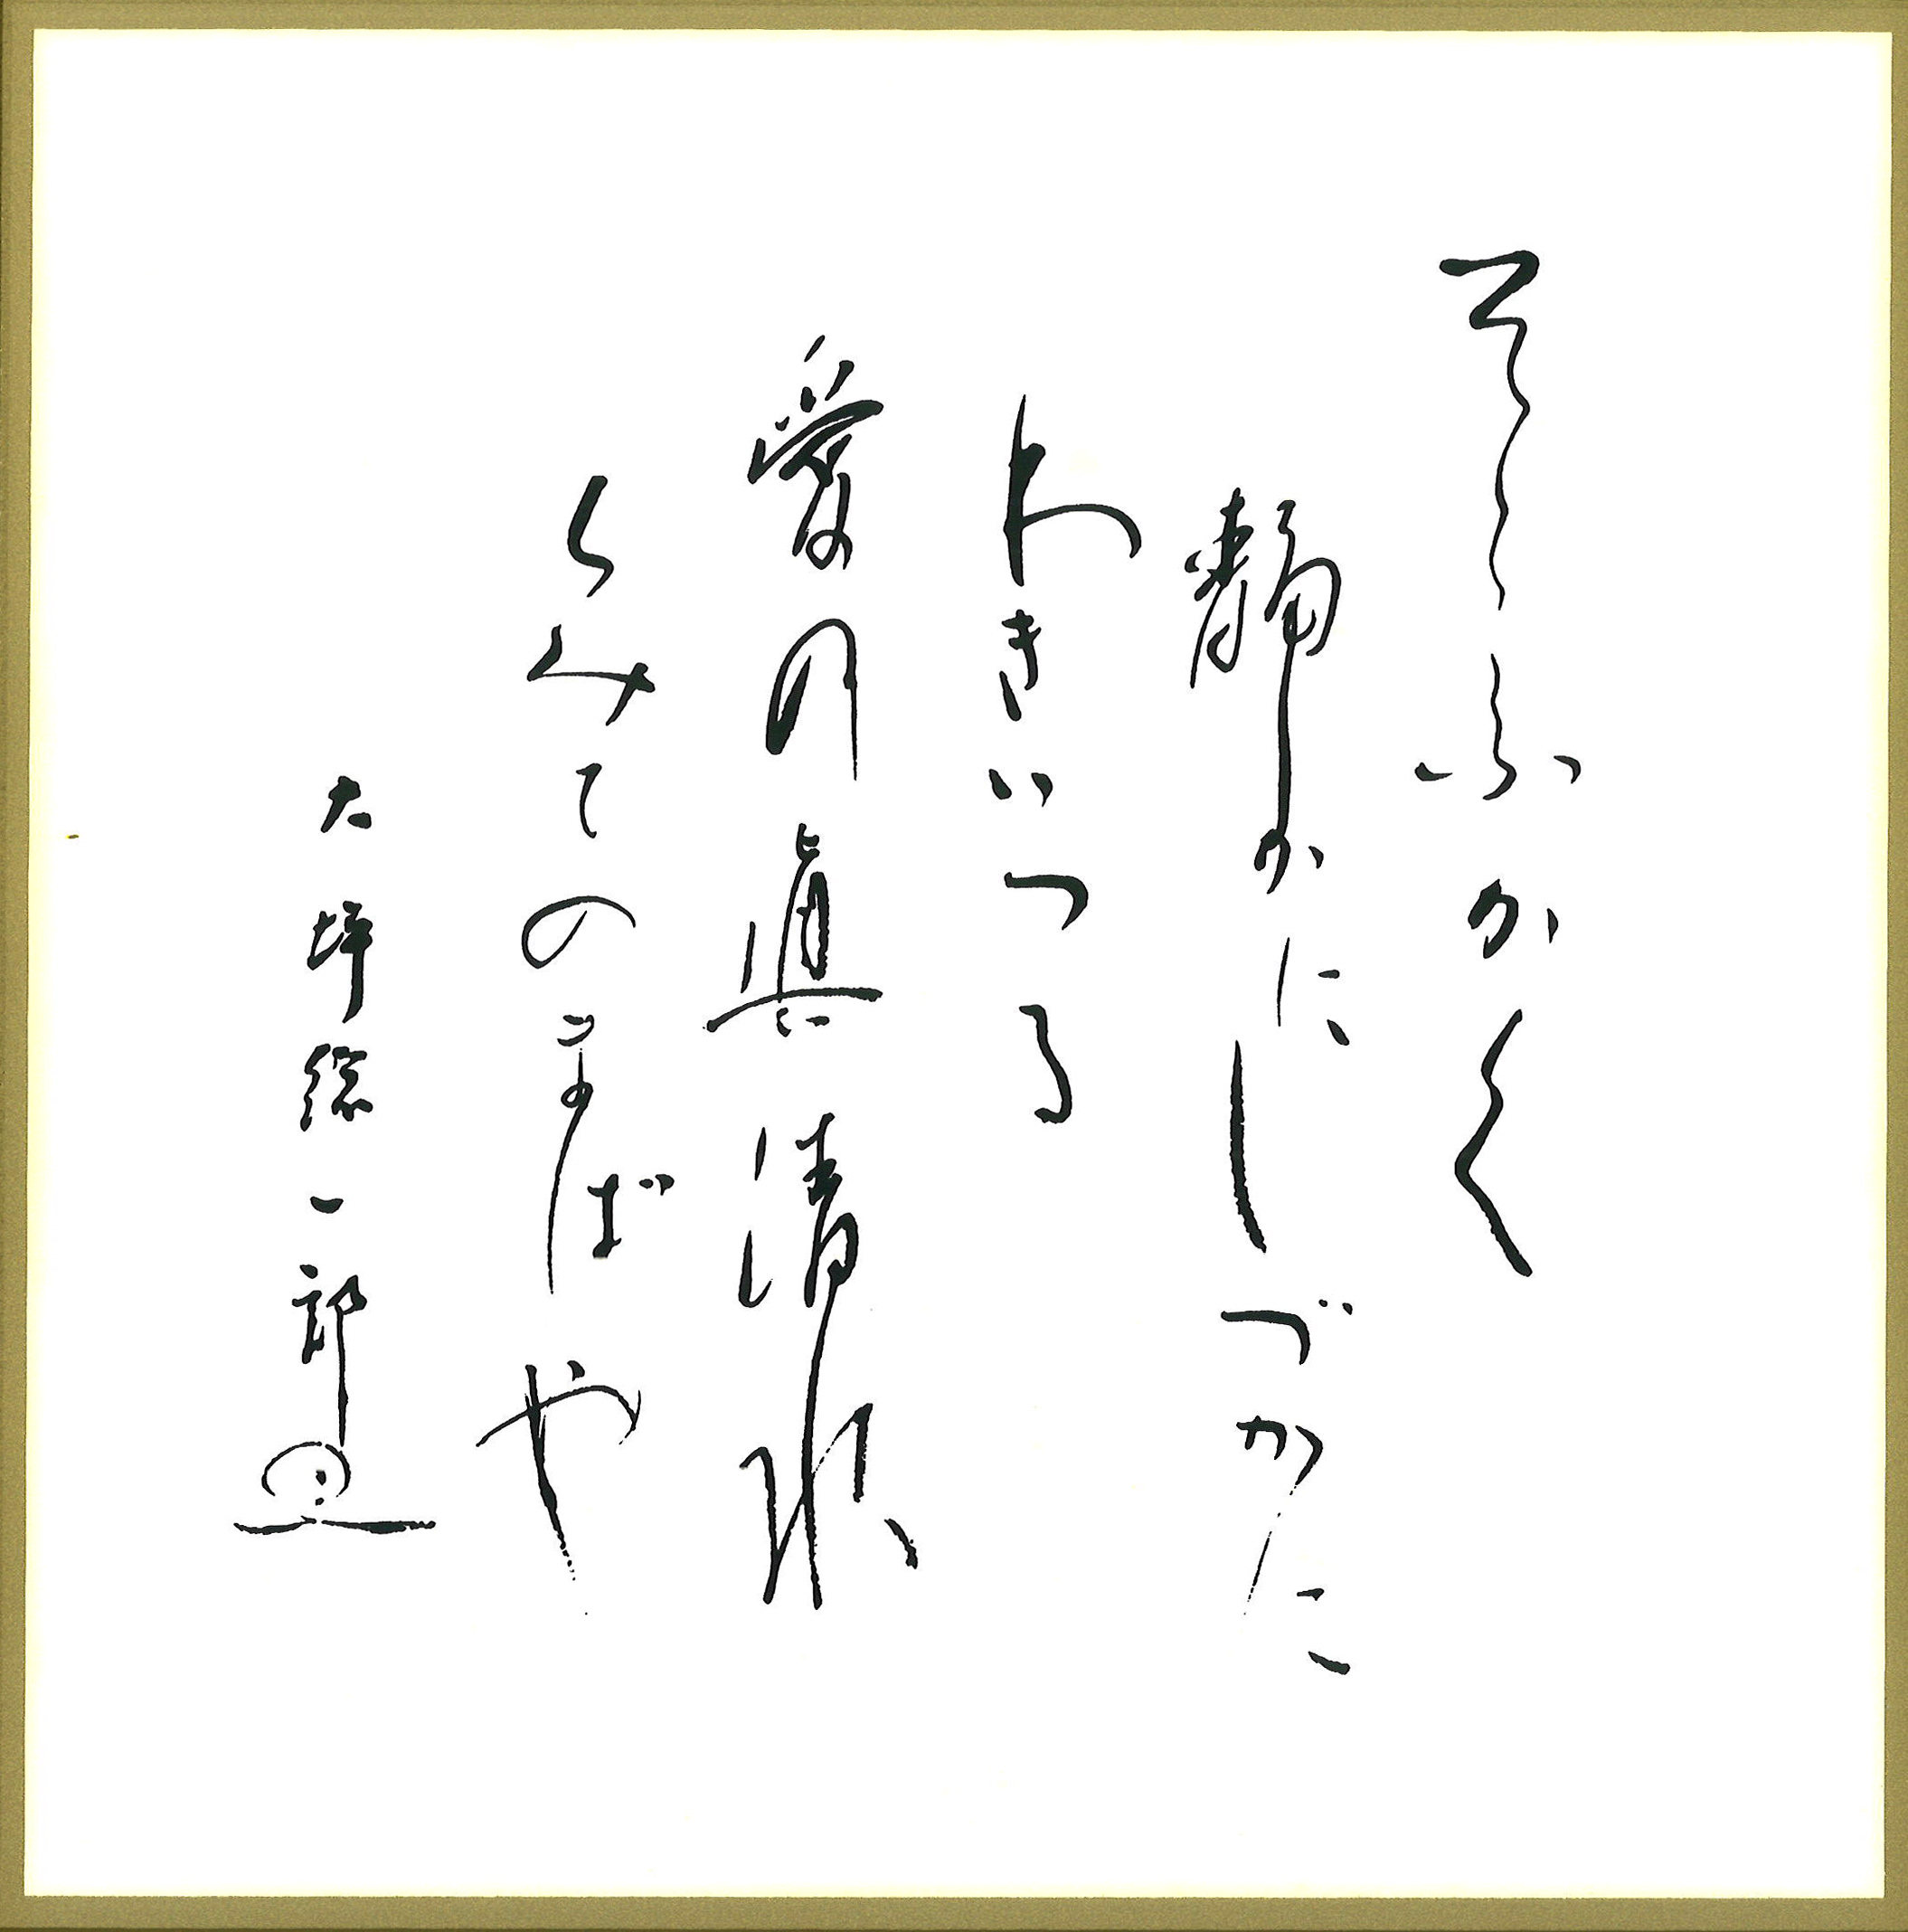 そこふかく
静かにしづかに
わきいつる
愛の眞清水
くみてのまばや
大坪総一郎